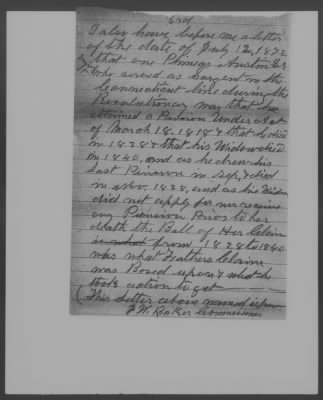 I also have before me a letter
of the date of July 12, 1872
that one Phineas Austin
who served as Sargent in the
Connecticut line during the
Revolutionary war that he
obtained a Pension Under Act
of March 18. 1818 & that he died
in 1828 & that his Widow died
in 1840, and as he drew his
last Pension in Sep, & died
in Nov. 1828, and as his Widow
did not apply for nor receive
any Pension Prior to her
death the Ball of Her Claim
from 1828 to 1840
was what Fathers Claim
was Based upon & what he
took action to get
(This letter above named is from
J. H. Baker Commissioner